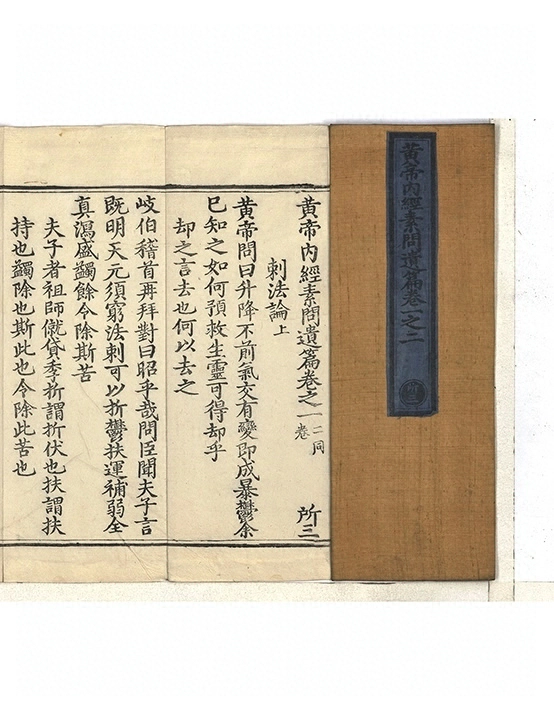 黃帝內經素問遺篇卷一之二
黃帝內經素問遺篇卷之一 二卷同 所三
刺法論上
黃帝問曰升降不前氣交有變即成暴鬱余
已知之如何預救生靈可得却乎
却之言去也何以去之
岐伯稽首再拜對曰昭乎哉問臣聞夫子言
既明天元須窮法刺可以折鬱扶運補弱全
真瀉盛蠲餘令除斯苦
夫子者祖師僦貸季折謂折伏也扶謂扶
持也蠲除也斯此也令除此苦也